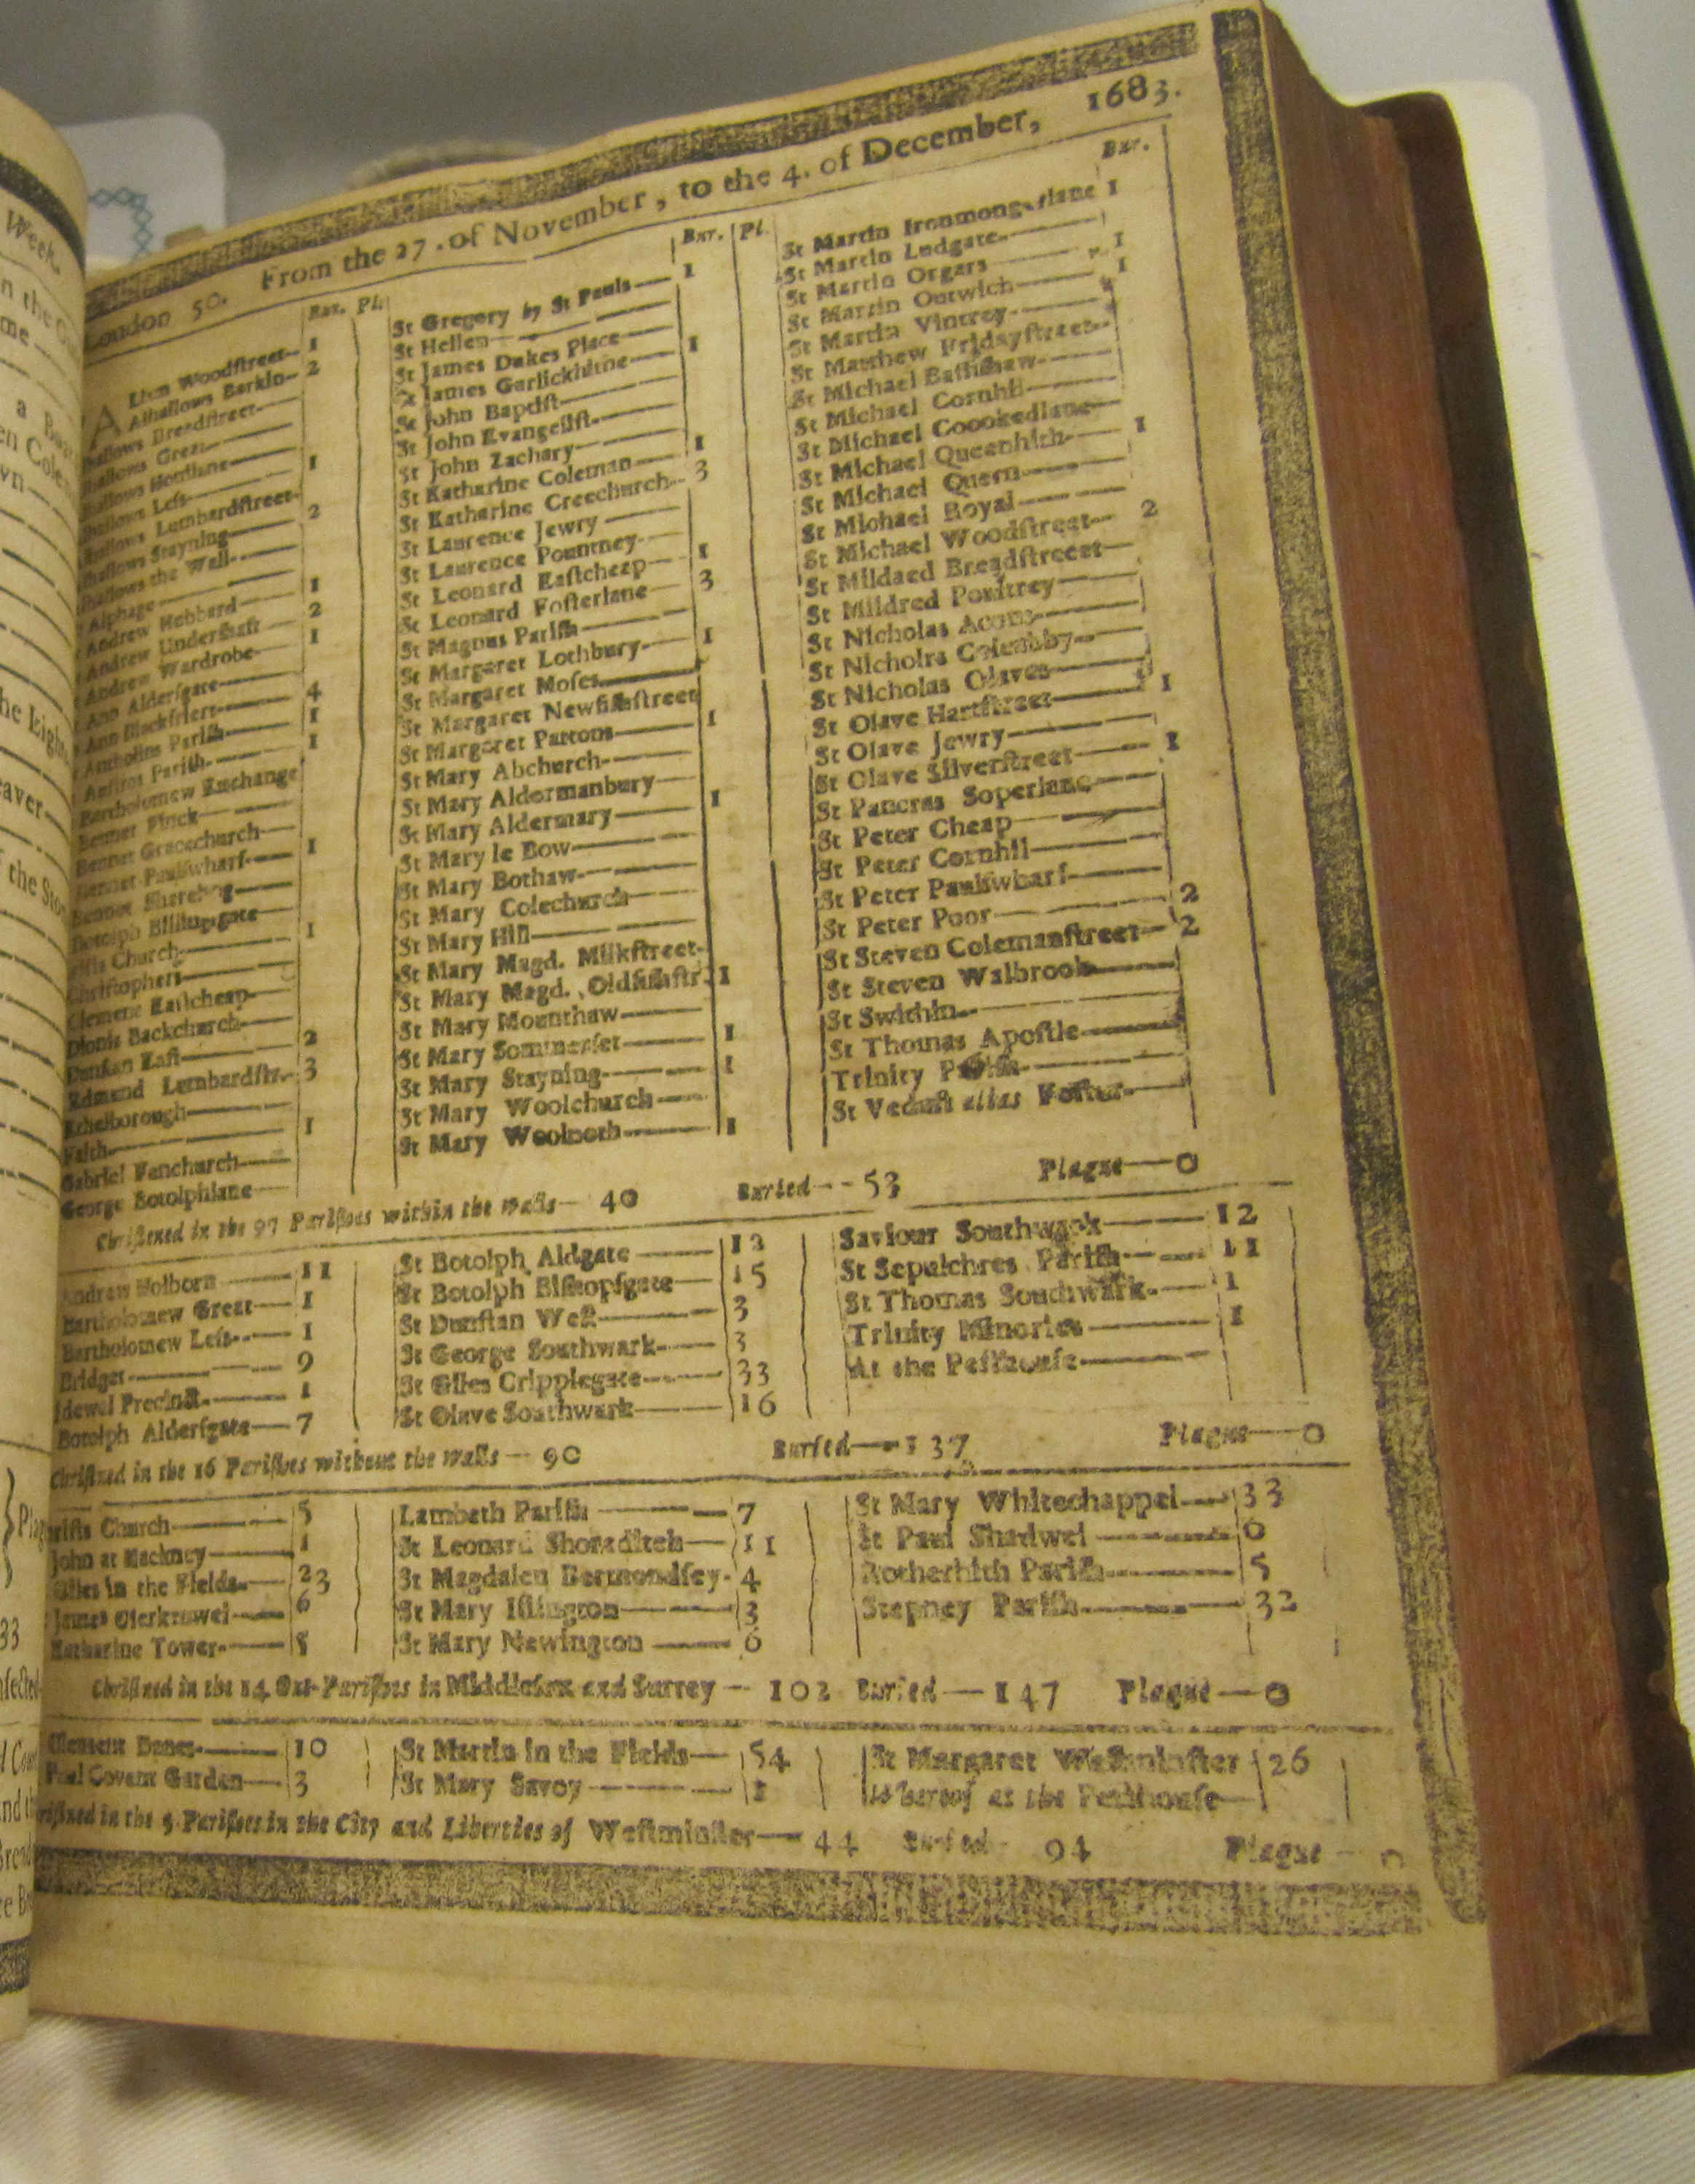 Week.
London 50. From the 27. of November, to the 4. of December, 1683.
Bur. Pl.
Lban Woodſtreet 1
Alhallows Barkin 2
hallows Breadſtreet
hallows Great
hallows Honilane
hallows Leſs 1
hallows Lumbardſtreet
hallows Stayning 2
hallows the Wall
Alphage
Andrew Hubbard 1
Andrew Underſhaft 2
Andrew Wardrobe 1
Ann Alderſgate
Ann Blackfriers 4
Antholins Pariſh 1
Auſtins Pariſh 1
Bartholomew Exchange
Bennet Finck
Bennet Gracechurch
Bennet Paulſwharf 1
Bennet Sherehog
Botolph Billingſgate
riſts Church 1
Chriſtophers
Clement Eaſtcheap
Dionis Backchurch
Dunſtan Eaſt 2
Edmund Lumbardſtr. 3
Ethelborough
Faith 1
Gabriel Fenchurch
George Botolphlane
Bur. Pl.
St Gregory by St Pauls 1
St Hellen
St James Dukes Place
St James Garlickhithe 1
St John Baptiſt
St John Evangeliſt
St John Zachary
St Katharine Coleman 1
St Katharine Creechurch 3
St Laurence Jewry
St Laurence Pountney
St Leonard Eaſtcheap 1
St Leonard Foſterlane 3
St Magnus Pariſh
St Margaret Lothbury 1
St Margaret Moſes
St Margaret Newfiſhſtreet
St Margaret Pattons 1
St Mary Abchurch
St Mary Aldermanbury
St Mary Aldermary 1
St Mary le Bow
St Mary Bothaw
St Mary Colechurch
St Mary Hill
St Mary Magd. Milkſtreet
St Mary Magd. Oldfiſhſtr. 1
St Mary Mounthaw
St Mary Sommerſet 1
St Mary Stayning 1
St Mary Woolchurch
St Mary Woolnoth 1
Bur.
St Martin Ironmongerlane 1
St Martin Ludgate
St Martin Orgars 1
St Martin Outwich 1
St Martin Vintrey
St Matthew Fridayſtreet
St Michael Baſſiſhaw
St Michael Cornhil
St Michael Coookedlane
St Michael Queenhith 1
St Michael Quern
St Michael Royal
St Michael Woodſtreet 2
St Mildaed Breadſtreet
St Mildred Poultrey
St Nicholas Acons
St Nicholrs Coleabby
St Nicholas Olaves
St Olave Hartſtreet 1
St Olave Jewry
St Olave Silverſtreet 1
St Pancras Soperlane
St Peter Cheap
St Peter Cornhil
St Peter Paulſwharf
St Peter Poor 2
St Steven Colemanſtreet 2
St Steven Walbrook
St Swithin
St Thomas Apoſtle
Trinity Pariſh
St Vedaſt alias Foſter
Chriſtned in the 97 Pariſhes within the walls 40 Buried 53 Plague 0
Andrew Holborn 11
Bartholomew Great 1
Bartholomew Leſs 1
Bridget 9
idewel Precinct 1
Botolph Alderſgate 7
St Botolph Aldgate 12
St Botolph Biſhopſgate 15
St Dunſtan Weſt 3
St George Southwark 3
St Giles Cripplegate 33
St Olave Southwark 16
Saviour Southwark 12
St Sepulchres Pariſh 11
St Thomas Southwark 1
Trinity Minories 1
At the Peſthouſe
Chriſtned in the 16 Pariſhes without the walls 90 Buried 137 Plague 0
riſts Church 5
John at Hackney 1
Giles in the Fields 23
James Clerkenwel 6
Katharine Tower 8
Lambeth Pariſh 7
St Leonard Shoreditch 11
St Magdalen Bermondſey 4
St Mary Iſlington 3
St Mary Newington 6
St Mary Whitechappel 33
St Paul Shadwel 6
Rotherhith Pariſh 5
Stepney Pariſh 32
Chriſtned in the 14 Out-Pariſhes in Middleſex and Surrey 102 Buried 147 Plague 0
Clement Danes 10
Paul Covent Garden 3
St Martin in the Fields 54
St Mary Savoy 1
St Margaret Weſtminſter 26
Whereof at the Peſthouſe
riſtned in the 5 Pariſhes in the City and Liberties of Weſtminſter 44 Buried 94 Plague 0